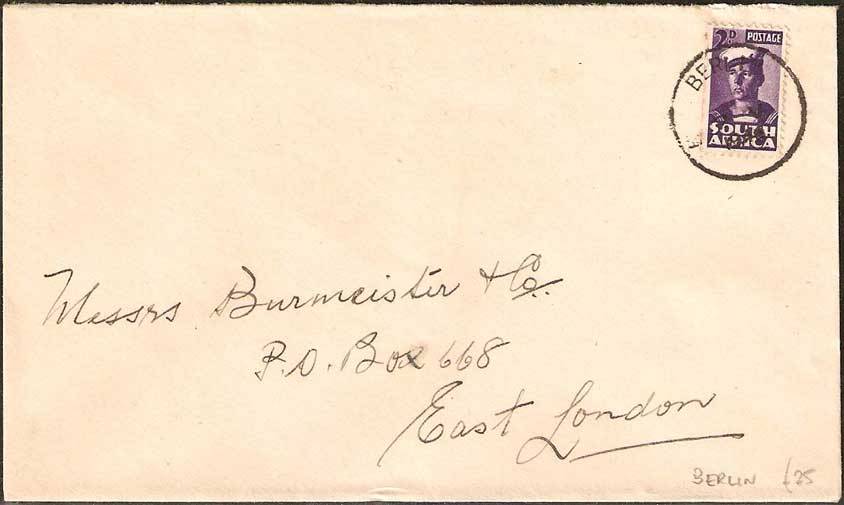 2D POSTAGE
BERLIN
SOUTH
AFRICA
Messrs Burmeister & Co.
P.O. Box 668
East London
BERLIN £25